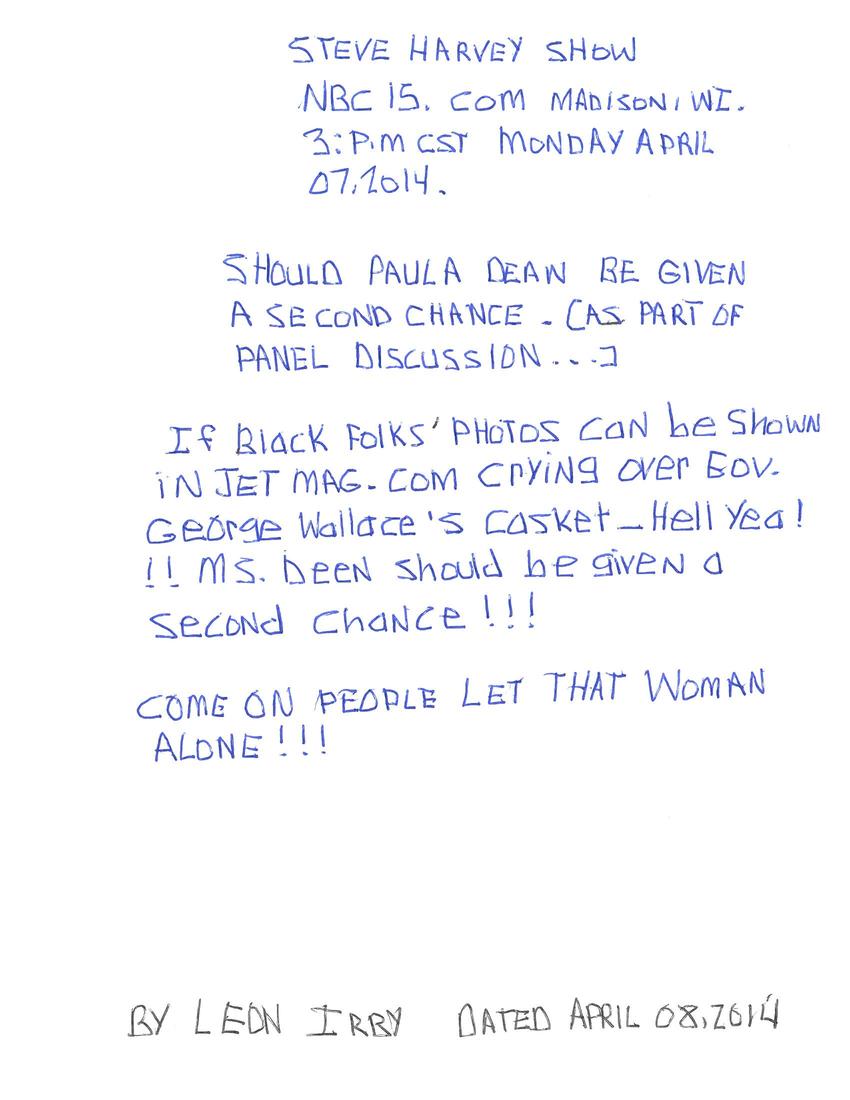 STEVE HARVEY SHOW
NBC 15. COM MADISON, WI.
3: P.M CST MONDAY APRIL
07,2014.
SHOULD PAULA DEAN BE GIVEN
A SECOND CHANCE - [AS PART OF
PANEL DISCUSSION...]
If Black Folks' PHOTOS can be Shown
iN JET MAG. COM CrYiNg over Gov.
George Wallace's Casket - Hell Yea!
!! MS. Deen should be given a
Second Chance!!!
COME ON PEOPLE LET THAT WOMAN
ALONE!!!
BY LEON IRBY DATED APRIL 08,2014